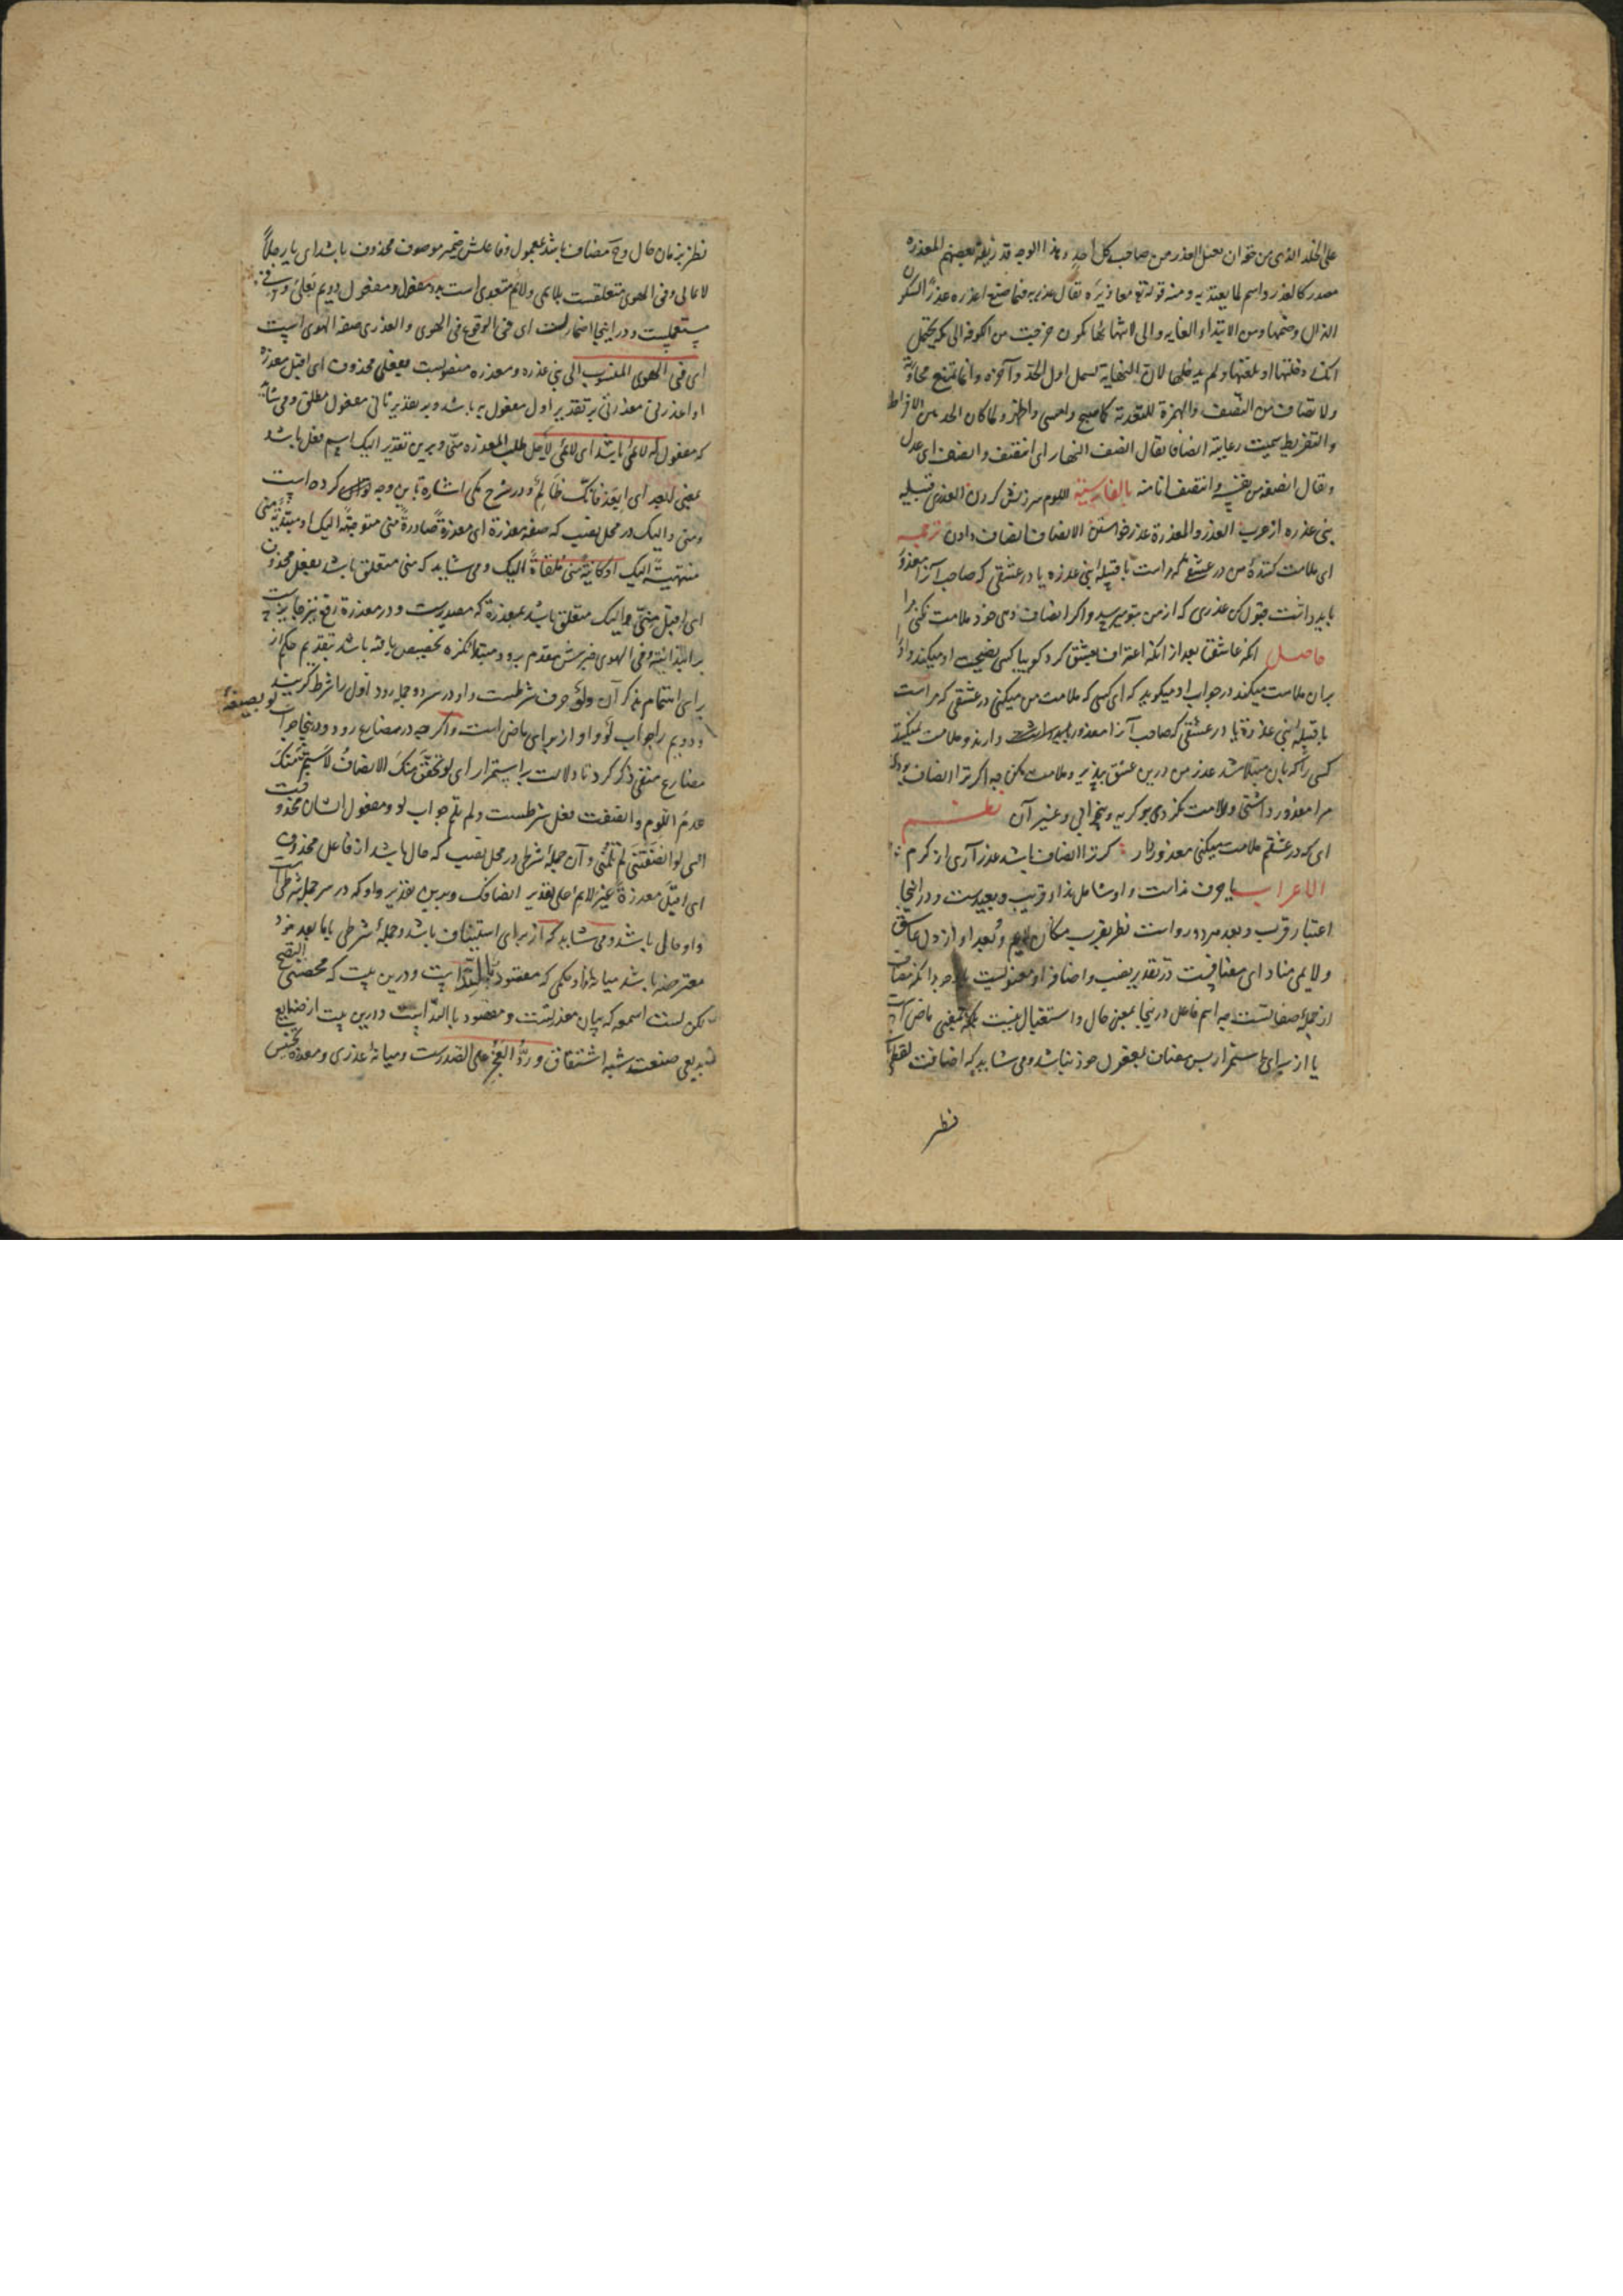 على الخلد الذى من حقه ان يعتل العذر من صاحب كل احد وهذا الوجه قد زيفه بعضهم المعذرة
مصدر كالعذر واسم لما يعتذر به ومنه قوله تع معاذيره يقال عذره فيما صنع اعذره عذرا بسكون
الذال وضمها ومن الابتداء الغايه والى لانتهائها كقولك خرجت من الكوفه الى مكه يحتمل
انك دخلتها او بلغتها ولم تدخلها لان النهاية تشمل اول الحد وآخره وانما تمتنع مجاوزته
والانصاف من النصف والهمزة للتعدية كاصبح وامسى واظهر ولما كان الحد بين الافراط
والتفريط سميت رعايته انصافا يقال انصف النهار اى انتصف وانصف اى عدل
ويقال انصفه من نفسه وانتصف انا منه بالفارسية اللوم سرزنش كردن العذرى قبيله
بنى عذره از عرب العذر والمعذرة عذر خواستن الانصاف انصاف دادن ترجمه
اى ملامت كنندهٔ من در عشقى كه مراست با قبيلهٔ بنى عذره يا در عشقى كه صاحب آنرا معذور
بايد داشت قبول كن عذرى كه از من بتو ميرسد واكر انصاف دهى خود ملامت نكنى مرا
حاصل انكه عاشق بعد از انكه اعتراف بعشق كرد كوييا كسى نصيحت او ميكند واو را
بران ملامت ميكند در جواب او ميكويد كه اى كسى كه ملامت من ميكنى در عشقى كه مراست
با قبيلهٔ بنى عذرة يا در عشقى كه صاحب آنرا معذور دارند وملامت نميكنند
كسى را كه بان مبتلا شد عذر من درين عشق بپذير وملامت مكن چه اكر ترا انصاف بودى
مرا معذور داشتى وملامت نكردى بر كريه وبيخوابى وغير آن نظم
اى كه در عشقم ملامت ميكنى معذور دار كر ترا انصاف باشد عذر آرى از كرم
الاعراب يا حرف نداست واو شامل نداء قريب وبعيد است ودر اينجا
اعتبار قرب وبعد هر دو رواست نظر بقرب مكان لايم وبعد او از دل عاشق
ولايمى مناداى مضافست در تقدير نصب واضافت او معنويست با وجود انكه مضاف
از جمله صفاتست چه اسم فاعل در ينجا بمعنى حال واستقبال نيست بلكه بمعنى ماضى است
يا از براى استمرار پس مضاف بمعمول خود نباشد ومى شايد كه اضافت لفظى باشد
نظر
نظر بزمان حال وح مضاف باشد بمعمول وفاعلش ضمير موصوف محذوف باشد اى يا رجلا
لائما لى وفى الهوى متعلقست بلايمى ولائم متعدى است بدو مفعول ومفعول دويم بعلى وفى
مستعملست ودر اينجا اضمارست اى فى الوقوع فى الهوى والعذرى صفه الهوى است
اى فى الهوى المنسوب الى بنى عذره ومعذره منصوبست بفعلى محذوف اى اقبل معذرة
او اعذرنى معذرتى بر تقدير اول مفعول به باشد وبر تقدير ثانى مفعول مطلق ومى شايد
كه مفعول له لائمى باشد اى لائمى لاجل طلب المعذره منى وبرين تقدير اليك اسم فعل باشد
بمعنى ابعد اى ابعد فانك ظالم ودر شرح مكى اشاره باين وجه كرده است
ومنى واليك در محل نصب كه صفه معذرة اى معذرة صادرة منى متوجهة اليك او مبتدية منى
منتهية اليك او كاينة منى ملقاة اليك ومى شايد كه منى متعلق باشد بفعل محذوف
اى اقبل منى واليك متعلق باشد بمعذرة كه مصدرست ودر معذرة رفع نيز جايزست
بر ابتدائيه وفى الهوى خبرش مقدم برو ومبتدا نكره تخصيص يافته باشد بتقديم حكم از
براى اهتمام بذكر آن ولو حرف شرطست واو در سر دو جمله رود اول را شرط كويند
ودويم را جواب لو واو از براى ماضى است واكرچه در مضارع رود ودر ينجا جواب لو بصيغهٔ
مضارع منفى ذكر كرد تا دلالت بر استمرار اى لو تحقق منك الانصاف لاستمر منك
عدم اللوم وانصفت فعل شرطست ولم تلم جواب لو ومفعول ايشان محذوفست
اى لو انصفتنى لم تلمنى وآن جملهٔ شرطى در محل نصب كه حال باشد از فاعل محذوف
اى اقبل معذرة غير لايم على تقدير انصافك وبرين تقدير واو كه در سر جملهٔ شرطى است
واو حالى باشد ومى شايد كه از براى استيناف باشد وجملهٔ شرطى با ما بعد خود
معترضه باشد ميانه ندا وحكمى كه مقصود بالنداست ودرين بيت كه محضتنى النصح
لكن لست اسمعه كه بيان معذرتست ومقصود بالنداست ودرين بيت از صنايع
بديعى صنعت شبه اشتقاق ورد العجز على الصدرست وميانهٔ عذرى ومعذره تجنيس